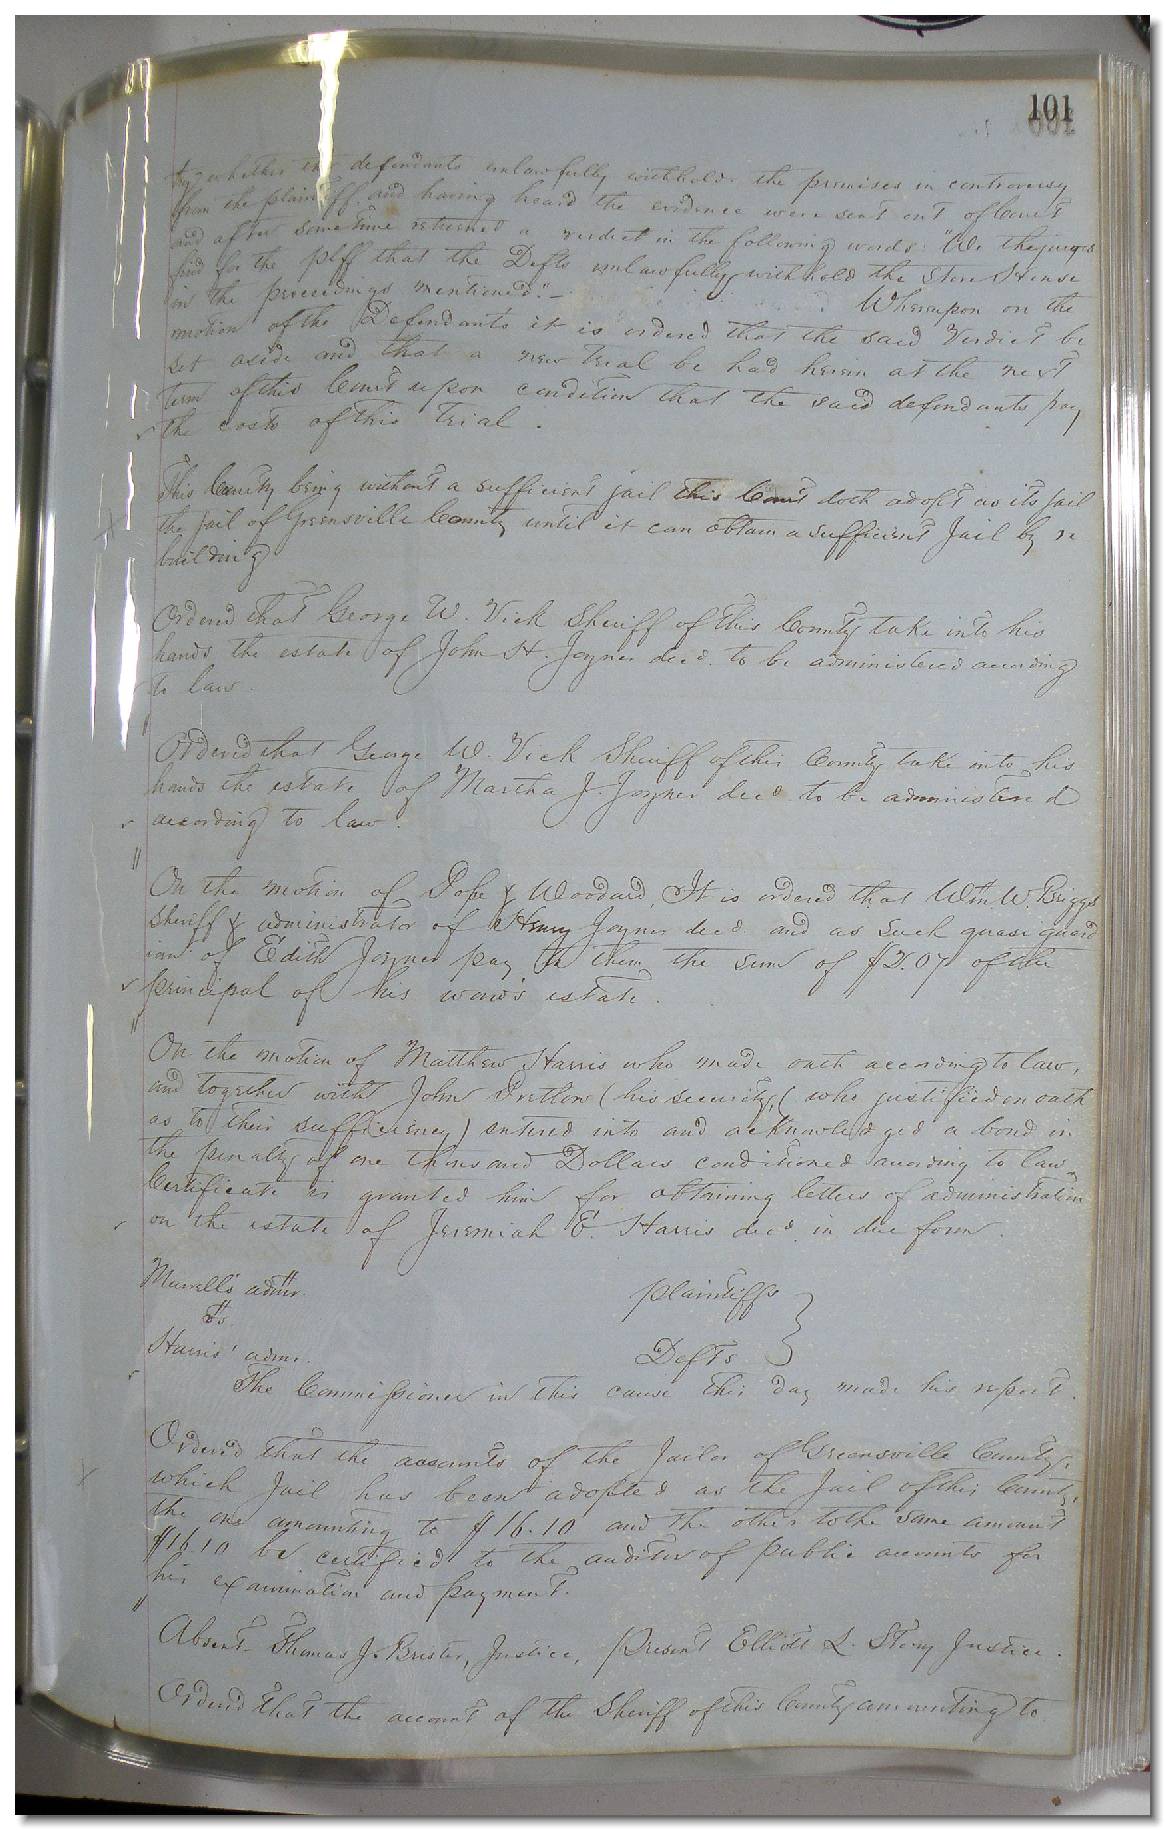 101
try whether the defendants unlawfully withhold the premises in controversy
from the plaintiff and having heard the evidence were sent out of Court
and after sometime returned a verdict in the following words: "We the jurors
find for the plff that the Defts unlawfully withhold the Store House
in the proceedings mentioned." — Whereupon on the
motion of the Defendants it is ordered that the said Verdict be
set aside and that a new trial be had herein at the next
term of this Court upon condition that the said defendants pay
the costs of this trial.
This County being without a sufficient jail this Court doth adopt as its jail
the jail of Greensville County until it can obtain a sufficient Jail by re
building
Ordered that George W. Vick Sheriff of this County take into his
hands the estate of John H. Joyner decd. to be administered according
to law.
Ordered that George W. Vick Sheriff of this County take into his
hands the estate of Martha J. Joyner decd. to be administered
according to law.
On the motion of Pope & Woodard, It is ordered that Wm. W. Briggs
Sheriff & administrator of Henry Joyner decd. and as such quasi guard
ian of Edith Joyner pay to them the sum of of the
principal of his ward's estate.
On the motion of Matthew Harris who made oath according to law,
and together with John Pretlow (his security, (who justified on oath
as to their sufficiency) entered into and acknowledged a bond in
the penalty of one thousand Dollars conditioned according to law.
Certificate is granted him for obtaining letters of administration
on the estate of Jeremiah E. Harris decd. in due form.
Murrell's admr. plaintiffs
vs
Harris' admr. Defts
The Commissioner in this cause this day made his report.
Ordered that the accounts of the Jailor of Greensville County,
which Jail has been adopted as the Jail of this County,
the one amounting to $16.10 and the other to the same amount
$16.10 be certified to the auditor of public accounts for
his examination and payment.
Absent Thomas J. Brister, Justice, Present Elliott L. Story Justice.
Ordered that the account of the Sheriff of this County amounting to